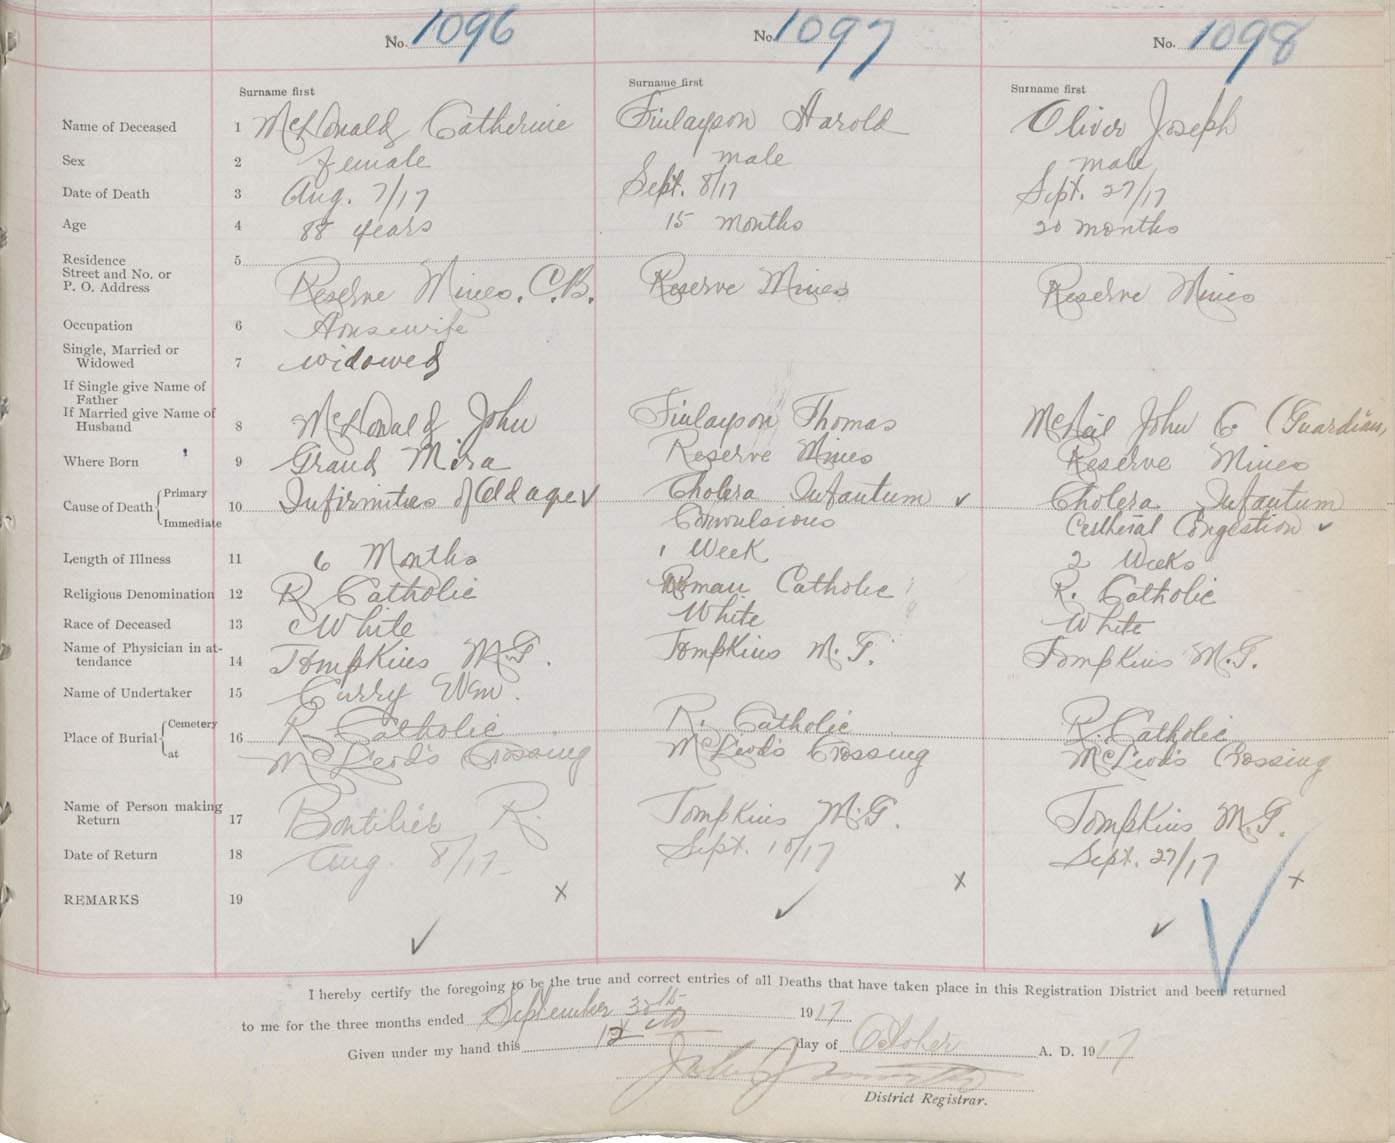 No. 1096 No. 1097 No. 1098
Surname first Surname first Surname first
Name of Deceased 1 McDonald Catherine Finlayson Harold Oliver Joseph
Sex 2 female male male
Date of Death 3 Aug. 7/17 Sept. 8/17 Sept. 27/17
Age 4 88 years 15 months 20 months
Residence 5
Street and No. or
P. O. Address Reserve Mines, C.B. Reserve Mines Reserve Mines
Occupation 6 Housewife
Single, Married or
Widowed 7 widowed
If Single give Name of
Father
If Married give Name of
Husband 8 McDonald John Finlayson Thomas McNeil John C. (Guardian)
Where Born 9 Grand Mira Reserve Mines Reserve Mines
Primary
Cause of Death 10 Infirmities of Old age ✓ Cholera Infantum ✓ Cholera Infantum
Immediate Convulsions Cerebral Congestion ✓
Length of Illness 11 6 Months 1 Week 2 Weeks
Religious Denomination 12 R Catholic Roman Catholic R. Catholic
Race of Deceased 13 White White White
Name of Physician in at-
tendance 14 Tompkins M.G. Tompkins M.G. Tompkins M.G.
Name of Undertaker 15 Curry Wm.
Cemetery R. Catholic R. Catholic R. Catholic
Place of Burial 16
at McLeod's Crossing McLeod's Crossing McLeod's Crossing
Name of Person making
Return 17 Boutilier R. Tompkins M.G. Tompkins M.G.
Date of Return 18 Aug. 8/17 Sept. 10/17 Sept. 27/17
REMARKS 19 x x x
✓ ✓ ✓ ✓
I hereby certify the foregoing to be the true and correct entries of all Deaths that have taken place in this Registration District and been returned
to me for the three months ended September 30th 1917
Given under my hand this 12th day of October A. D. 1917
John
District Registrar.